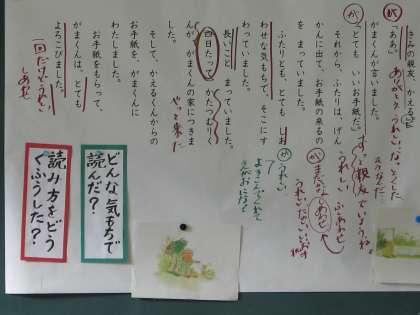 きみの親友、かえる。」
が
「ああ。」
ありがとう うれしいな
がまくんが言いました。
が
「とても いいお手紙だ。」
ずっと親友でいようね
それから、ふたりは、げん
かんに出て、お手紙の来るの
をまっていました。
が
ふたりとも、とても しあ
が
うれしい
わせな気もちで、そこにす
わっていました。
長いこと まっていました。
四日たって、かたつむりく
んが、がまくんの家につきま
やっと来た
した。
そして、かえるくんからの
お手紙を、がまくんに
わたしました。
お手紙をもらって、
がまくんは、とても
よろこびました。
一回だけどうれしい
しあわせ
どんな気もちで
読んだ？
読み方をどう
くふうした？